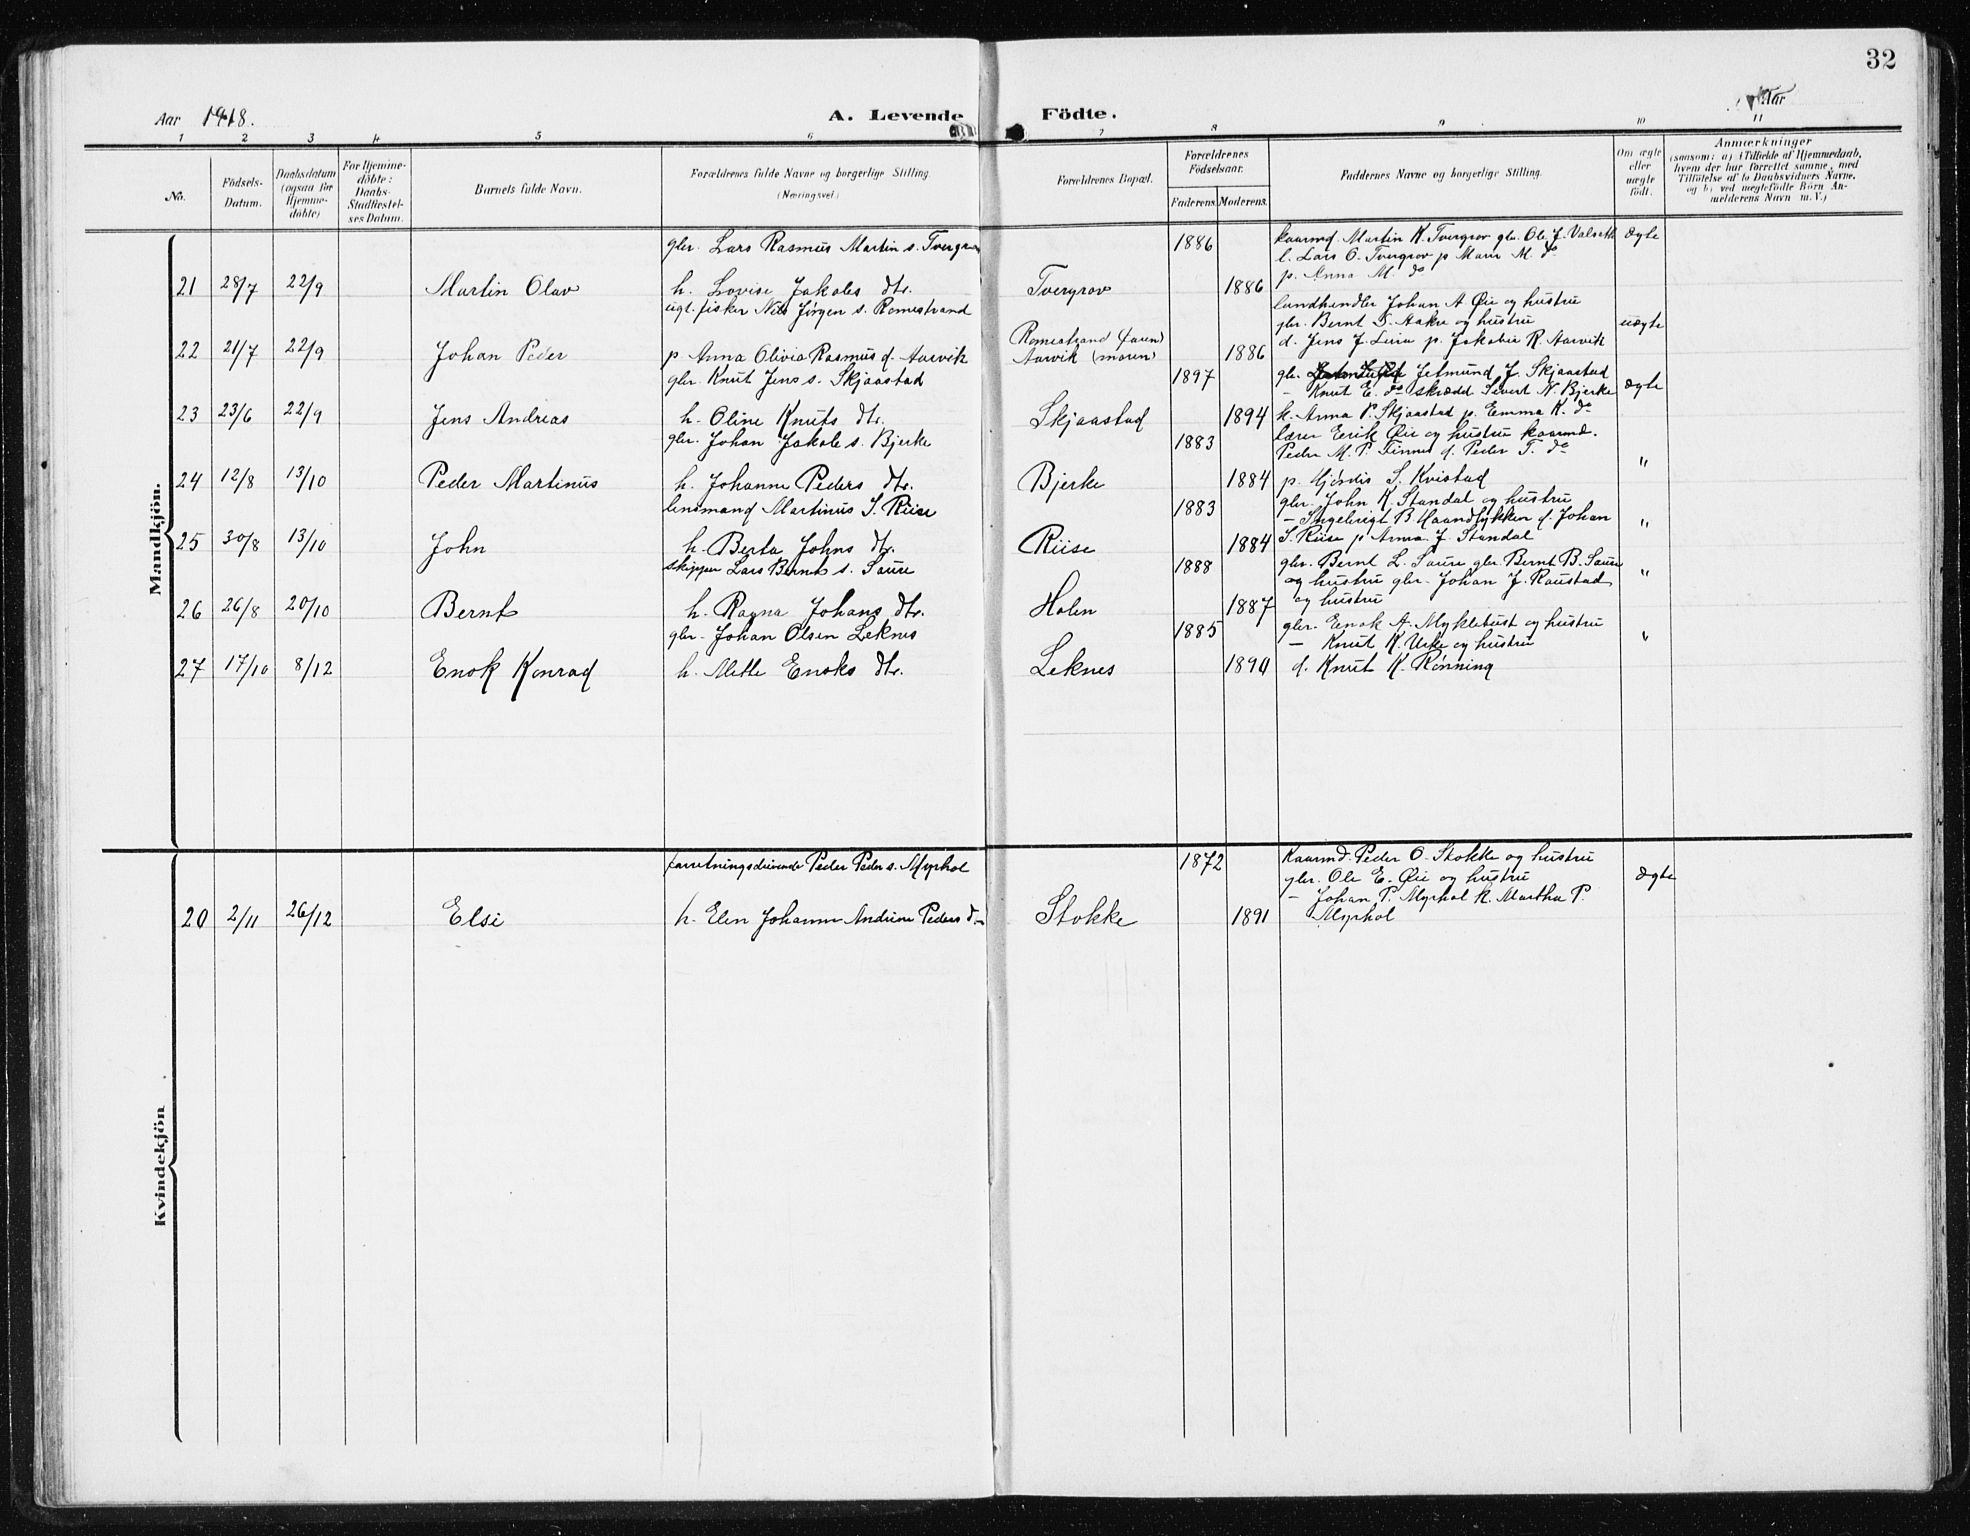 32
Aar 1918.
A. Levende Födte.
Aar
1 2 3 4 5 6 7 8 9 10 11
No.
Födsels-Datum.
Daabsdatum (ogsaa for Hjemme-döbte)
For Hjemme-döbte: Daabs-Stadfæstel-ses Datum.
Barnets fulde Navn.
Forældrenes fulde Navne og borgerlige Stilling. (Næringsvei)
Forældrenes Bopæl.
Forældrenes Födselsaar.
Faderens. Moderens.
Faddernes Navne og borgerlige Stilling.
Om ægte eller uægte födt.
Anmærkninger
(saasom: a) i Tilfælde af Hjemmedaab, hvem der har forrettet samme, med Tilföielse af to Daabsvidners Navne, og b) ved uægtefödte Börn An-melderens Navn m. V.)
Mandkjön.
gbr. Lars Rasmus Martin s. Tvergrov 1886 kaarmd. Martin K. Tvergrov gbr. Ole J. Valseth ægte
l. Lars O. Tvergrov p. Marie M. do
p. Anna M. do
21 28/7 22/9 Martin Olav h. Lovise Jakobs dtr. Tvergrov 1886
ugt. fisker Nils Jörgen s. Romestrand landhandler Johan A. Øie og hustru
gbr. Bernt S. Aakre og hustru uægte
22 21/7 22/9 Johan Peder p. Anna Olivia Rasmus d. Aarvik Romestrand (faren) Aarvik (moren) 1886 d. Jens J. p. Jakobie R. Aarvik
gbr. Knut Jens s. Skjaastad 1897 gbr. Jetmund J. Skjaastad
– Knut E. do skrædd. Sivert N. Bjerke ægte
23 23/6 22/9 Jens Andreas h. Oline Knuts dtr. Skjaastad 1894 k. Anna P. Skjaastad p. Emma K. do
gbr. Johan Jakob s. Bjerke 1883 lærer Eerik Øie og hustru kaarmd.
Peder M. P. Finnes d. Peder T. do
24 12/8 13/10 Peder Martinus h. Johanne Peders dtr. Bjerke 1884 p. Hjördis S. Kvistad "
lensmand Martinus S. Riise 1883 gbr. John K. Standal og hustru
– Ingebrigt B. Maandlykken d. Johan "
25 30/8 13/10 John h. Berta Johns dtr. Riise 1884 S. Riise p. Anna J. Standal
skipper Lars Bernt s. Saure 1888 gbr. Bernt L. Saure gbr. Bernt B. Saure
og hustru gbr. Johan J. Raustad "
26 26/8 20/10 Bernt h. Ragna Johans dtr. Holen 1887 og hustru
gbr. Johan Olsen Leknes 1885 gbr. Enok A. Myklebust og hustru
– Knut K. Urke og hustru "
27 17/10 8/12 Enok Konrad h. Mette Enoks dtr. Leknes 1890 d. Knut K. Rönning
Kvindekjön
forretningsdrivende Peder Peder s. Myrhol 1872 Kaarmd. Peder O. Stokke og hustru
gbr. Ole E. Øie og hustru ægte
– Johan P. Myrhol k. Martha P.
20 2/11 26/12 Elsi h. Elen Johanne Andrine Peders d. Stokke 1891 Myrhol